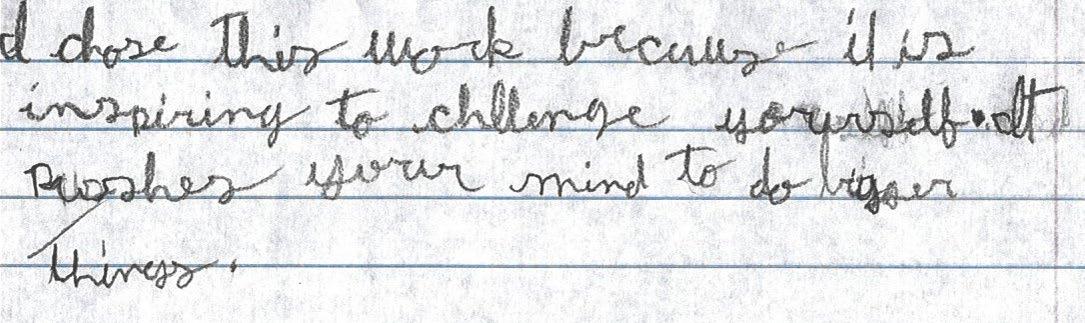 I chose this work because it is
inspiring to chllenge yourself. It
pushes your mind to do bigger
things.